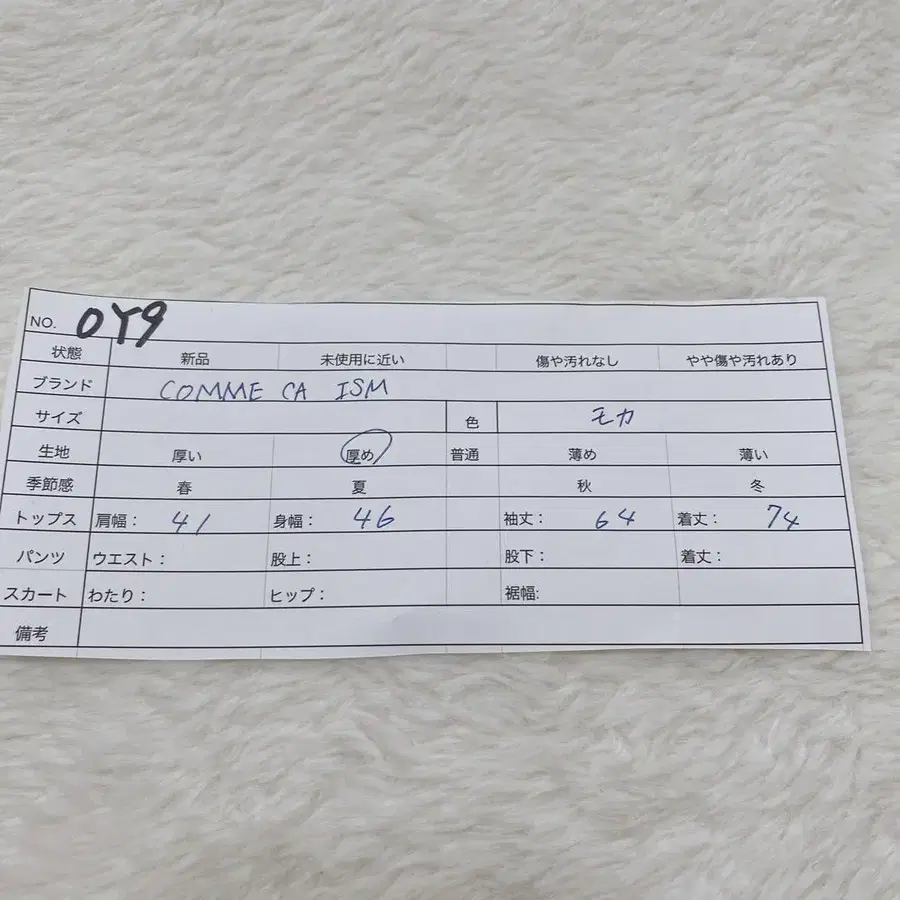 NO. OY9
状態 新品 未使用に近い 傷や汚れなし やや傷や汚れあり
ブランド COMME CA ISM
サイズ 色 モカ
生地 厚い 厚め 普通 薄め 薄い
季節感 春 夏 秋 冬
トップス 肩幅： 41 身幅： 46 袖丈： 64 着丈： 74
パンツ ウエスト： 股上： 股下： 着丈：
スカート わたり： ヒップ： 裾幅:
備考